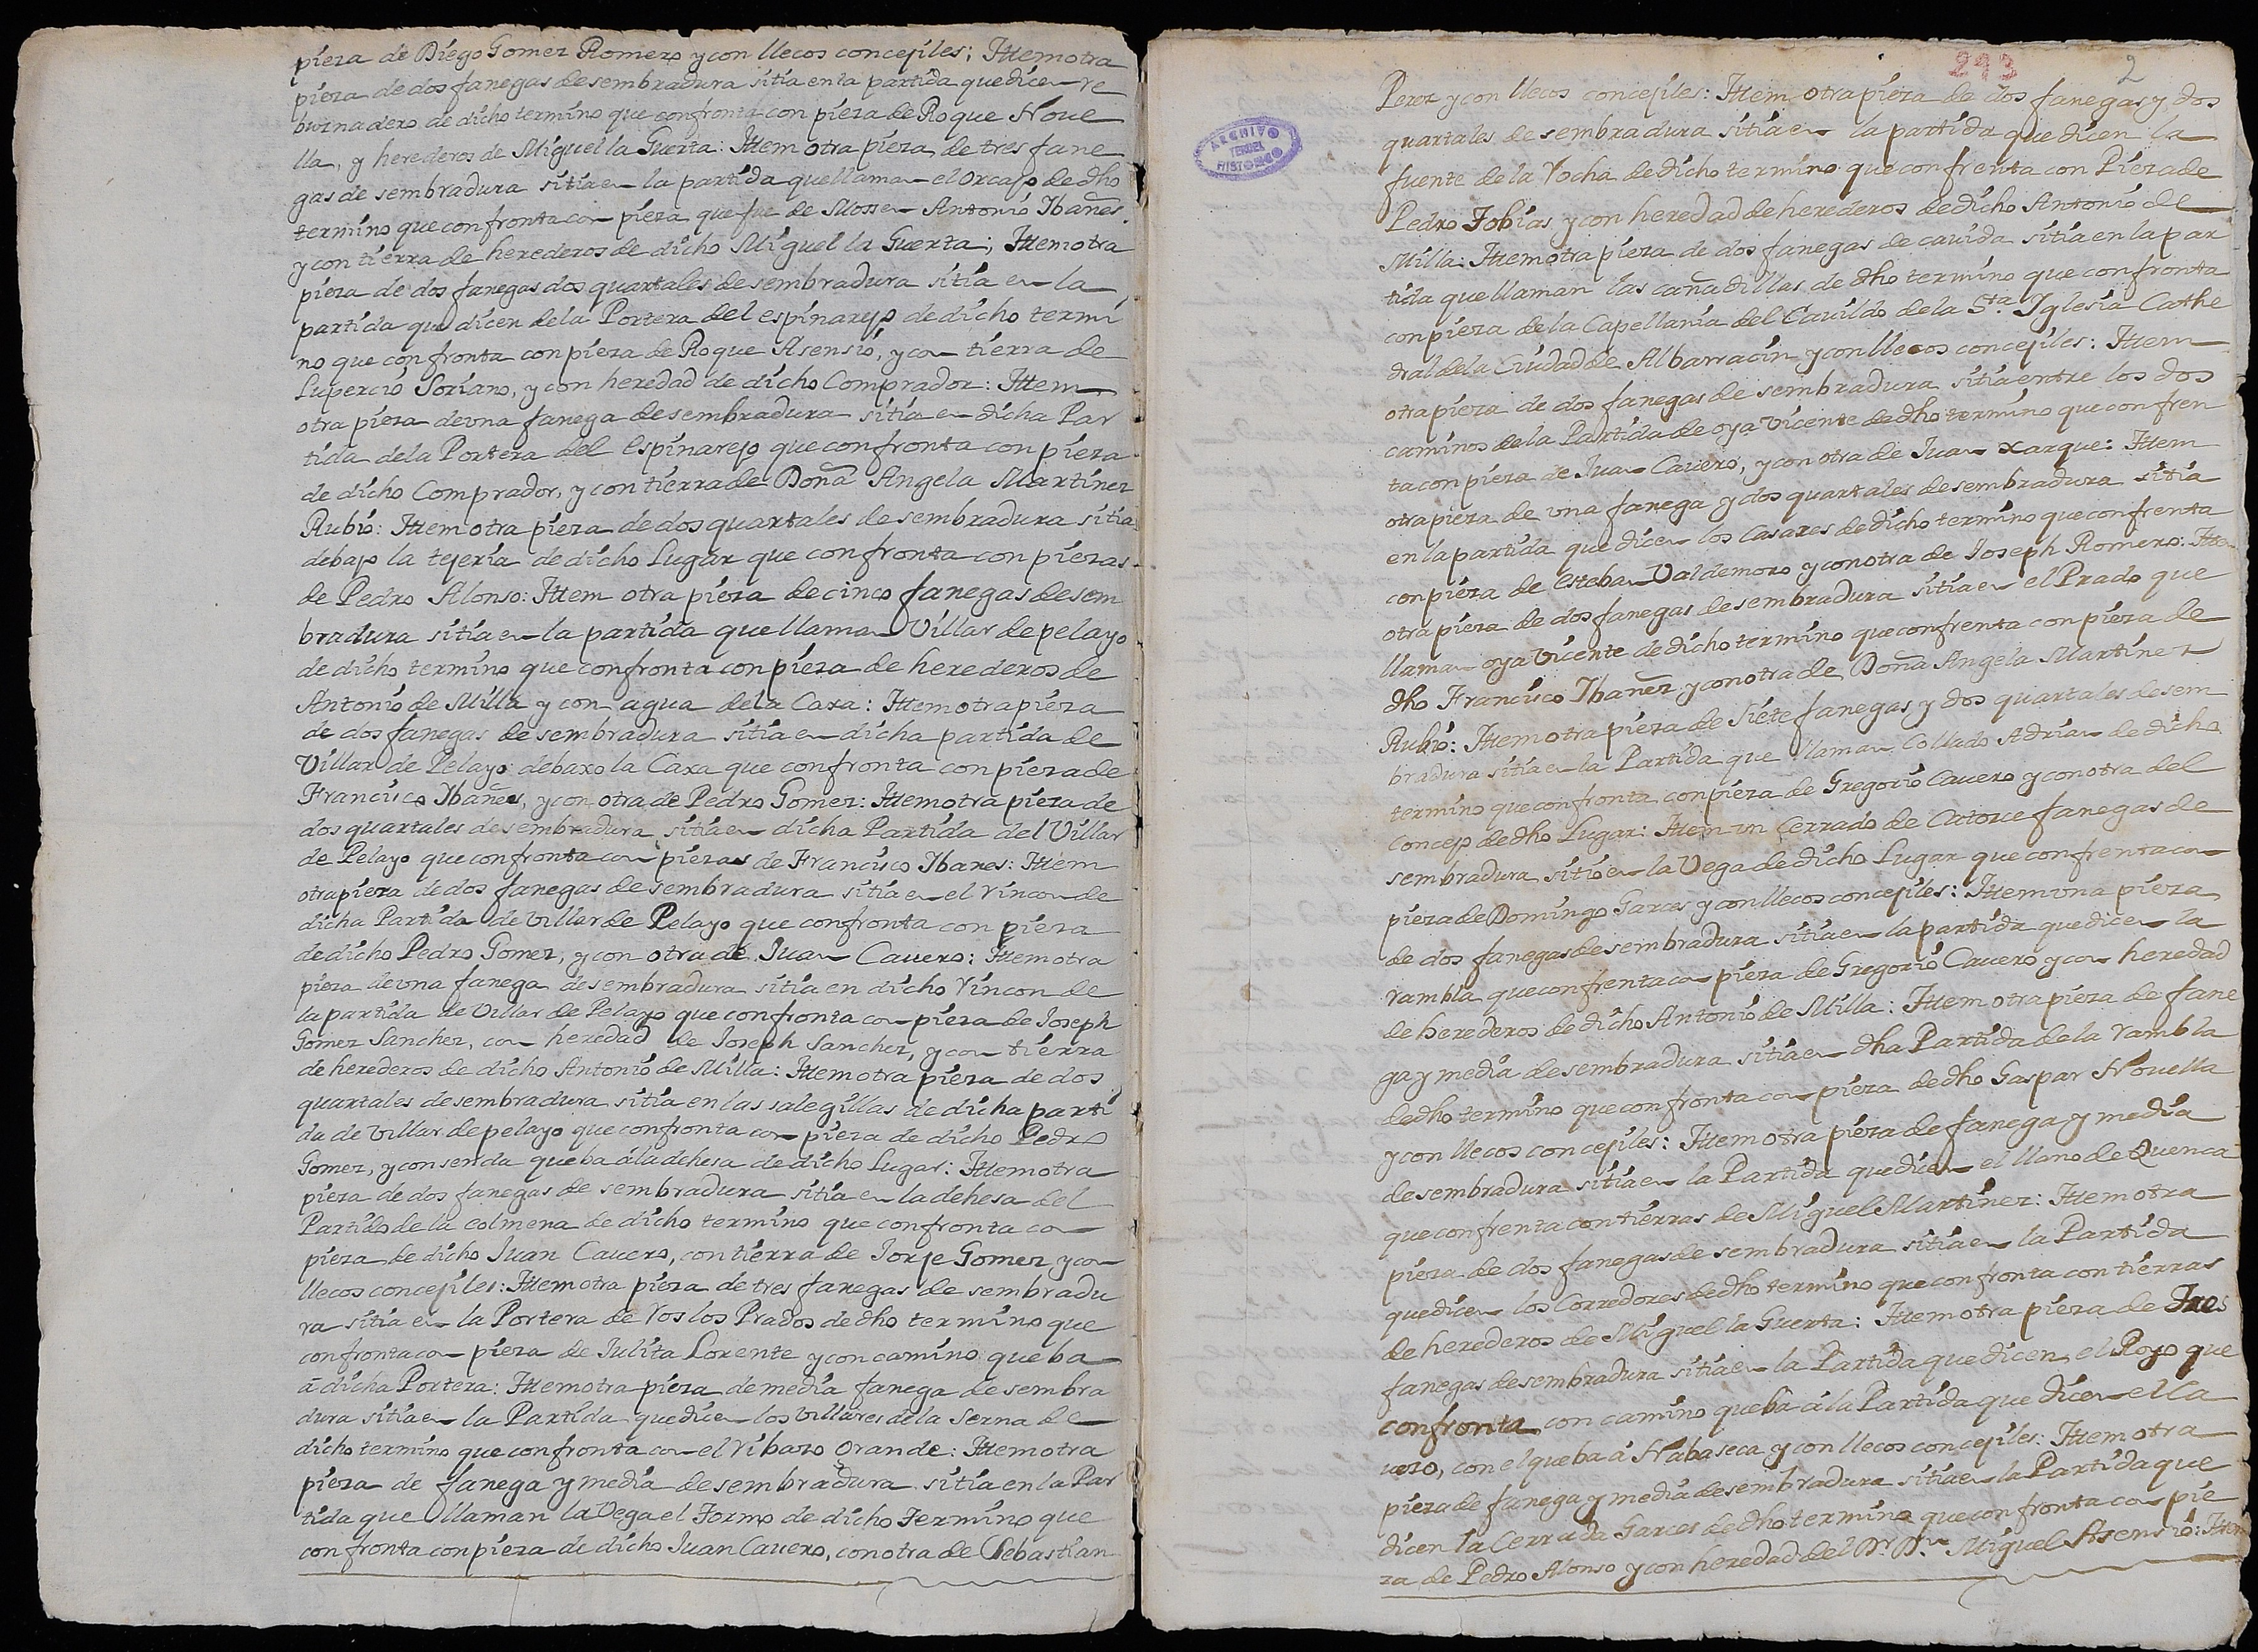 pieza de Diego Gomez Romero y con llecos concejiles; Ittem otra
pieza de dos fanegas de sembradura sitia en la partida que dicen re
burnadero de dicho termino que confronta con pieza de Roque Noue
lla, y herederos de Miguel la Guerta: Ittem otra pieza de tres fane
gas de sembradura sitia en la partida que llaman el orcajo de dho
termino que confronta con pieza que fue de Mossen Antonio Ybañes
y con tierra de herederos de dicho Miguel la Guerta; Ittem otra
pieza de dos fanegas dos quartales de sembradura sitia en la
partida que dicen dela Portera del espinarejo de dicho termi
no que confronta con pieza de Roque Asensio, y con tierra de
Lupercio Soriano, y con heredad de dicho Comprador: Ittem
otra pieza de vna fanega de sembradura sitia en dicha Par
tida dela Portera del Espinarejo que confronta con pieza
de dicho Comprador, y con tierra de Doña Angela Martinez
Rubio: Ittem otra pieza de dos quartales de sembradura sitia
debajo la tejeria de dicho Lugar que confronta con piezas
de Pedro Alonso: Ittem otra pieza de cinco fanegas de sem
bradura sitia en la partida que llaman Villar de pelayo
de dicho termino que confronta con pieza de herederos de
Antonio de Milla y con agua dela Caxa: Ittem otra pieza
de dos fanegas de sembradura sitia en dicha partida de
Villar de Pelayo debaxo la Caxa que confronta con pieza de
Francisco Ybañes, y con otra de Pedro Gomez: Ittem otra pieza de
dos quartales de sembradura sitia en dicha Partida del Villar
de Pelayo que confronta con piezas de Francisco Ybanes: Ittem
otra pieza de dos fanegas de sembradura sitia en el rincon de
dicha Partida de villar de Pelayo que confronta con pieza
de dicho Pedro Gomez, y con otra de Juan Cauero: Ittem otra
pieza de vna fanega de sembradura sitia en dicho rincon de
la partida de Villar de Pelayo que confronta con pieza de Joseph
Gomez Sanchez, con heredad de Joseph Sanchez, y con tierra
de herederos de dicho Antonio de Milla: Ittem otra pieza de dos
quartales de sembradura sitia en las salegillas de dicha parti
da de villar de pelayo que confronta con pieza de dicho Pedro
Gomez, y con senda que ba á la dehesa de dicho Lugar: Ittem otra
pieza de dos fanegas de sembradura sitia en la dehesa del
Partido de la colmena de dicho termino que confronta con
pieza de dicho Juan Cauero, con tierra de Jorje Gomez y con
llecos concejiles: Ittem otra pieza de tres fanegas de sembradu
ra sitia en la Portera de Vos los Prados de dho termino que
confronta con pieza de Julita Lorente y con camino que ba
á dicha Portera: Ittem otra pieza de media fanega de sembra
dura sitia en la Partida que dicen los villares de la Serna de
dicho termino que confronta con el ribazo Grande: Ittem otra
pieza de fanega y media de sembradura sitia en la Par
tida que llaman la Vega el Tormo de dicho Termino que
confronta con pieza de dicho Juan Cauero, con otra de Sebastian
293 2
Perez y con llecos concejiles: Ittem otra pieza de dos fanegas y dos
quartales de sembradura sitia en la partida que dicen la
fuente de la Vocha de dicho termino que confrenta con Pieza de
Pedro Tobias y con heredad de herederos de dicho Antonio de
Milla: Ittem otra pieza de dos fanegas de cauida sitia en la par
tida que llaman las cañadillas de dho termino que confronta
con pieza de la Capellania del Cauildo de la Sta. Yglesia Cathe
dral de la Ciudad de Albarracin y con llecos concejiles: Ittem
otra pieza de dos fanegas de sembradura sitia entre los dos
caminos de la Partida de oya Vicente de dho termino que confren
ta con pieza de Juan Cauero, y con otra de Juan Xarque: Ittem
otra pieza de vna fanega y dos quartales de sembradura sitia
en la partida que dicen los Casares de dicho termino que confrenta
con pieza de Esteban Valdemoro y con otra de Joseph Romero: Ittem
otra pieza de dos fanegas de sembradura sitia en el Prado que
llaman oya Vicente de dicho termino que confrenta con pieza de
dho Francisco Ybañez y con otra de Doña Angela Martinez
Rubio: Ittem otra pieza de Siete fanegas y dos quartales de sem
bradura sitia en la Partida que llaman Collado Adrian de dicho
termino que confronta con pieza de Gregorio Cauero y con otra del
Concejo de dho Lugar: Ittem vn Cerrado de Catorce fanegas de
sembradura sitio en la Vega de dicho Lugar que confrenta con
pieza de Domingo Garces y con llecos concejiles: Ittem vna pieza
de dos fanegas de sembradura sitia en la partida que dicen la
rambla que confrenta con pieza de Gregorio Cauero y con heredad
de herederos de dicho Antonio de Milla: Ittem otra pieza de fane
ga y media de sembradura sitia en dha Partida de la rambla
de dho termino que confronta con pieza de dho Gaspar Nouella
y con llecos concejiles: Ittem otra pieza de fanega y media
de sembradura sitia en la Partida que dicen el llano de Quenca
que confrenta con tierras de Miguel Martinez: Ittem otra
pieza de dos fanegas de sembradura sitia en la Partida
que dicen los Corredores de dho termino que confronta con tierras
de herederos de Miguel la Guerta: Ittem otra pieza de Tres
fanegas de sembradura sitia en la Partida que dicen el Royo que
confronta con camino que ba á la Partida que dicen el la
uero, con el que ba á Nabaseca y con llecos concejiles: Ittem otra
pieza de fanega y media de sembradura sitia en la Partida que
dicen la Cerrada Garces de dho termino que confronta con pie
za de Pedro Alonso y con heredad del Dr. Dn. Miguel Asensio: Ittem
ARCHIVO
TERUEL
HISTORICO